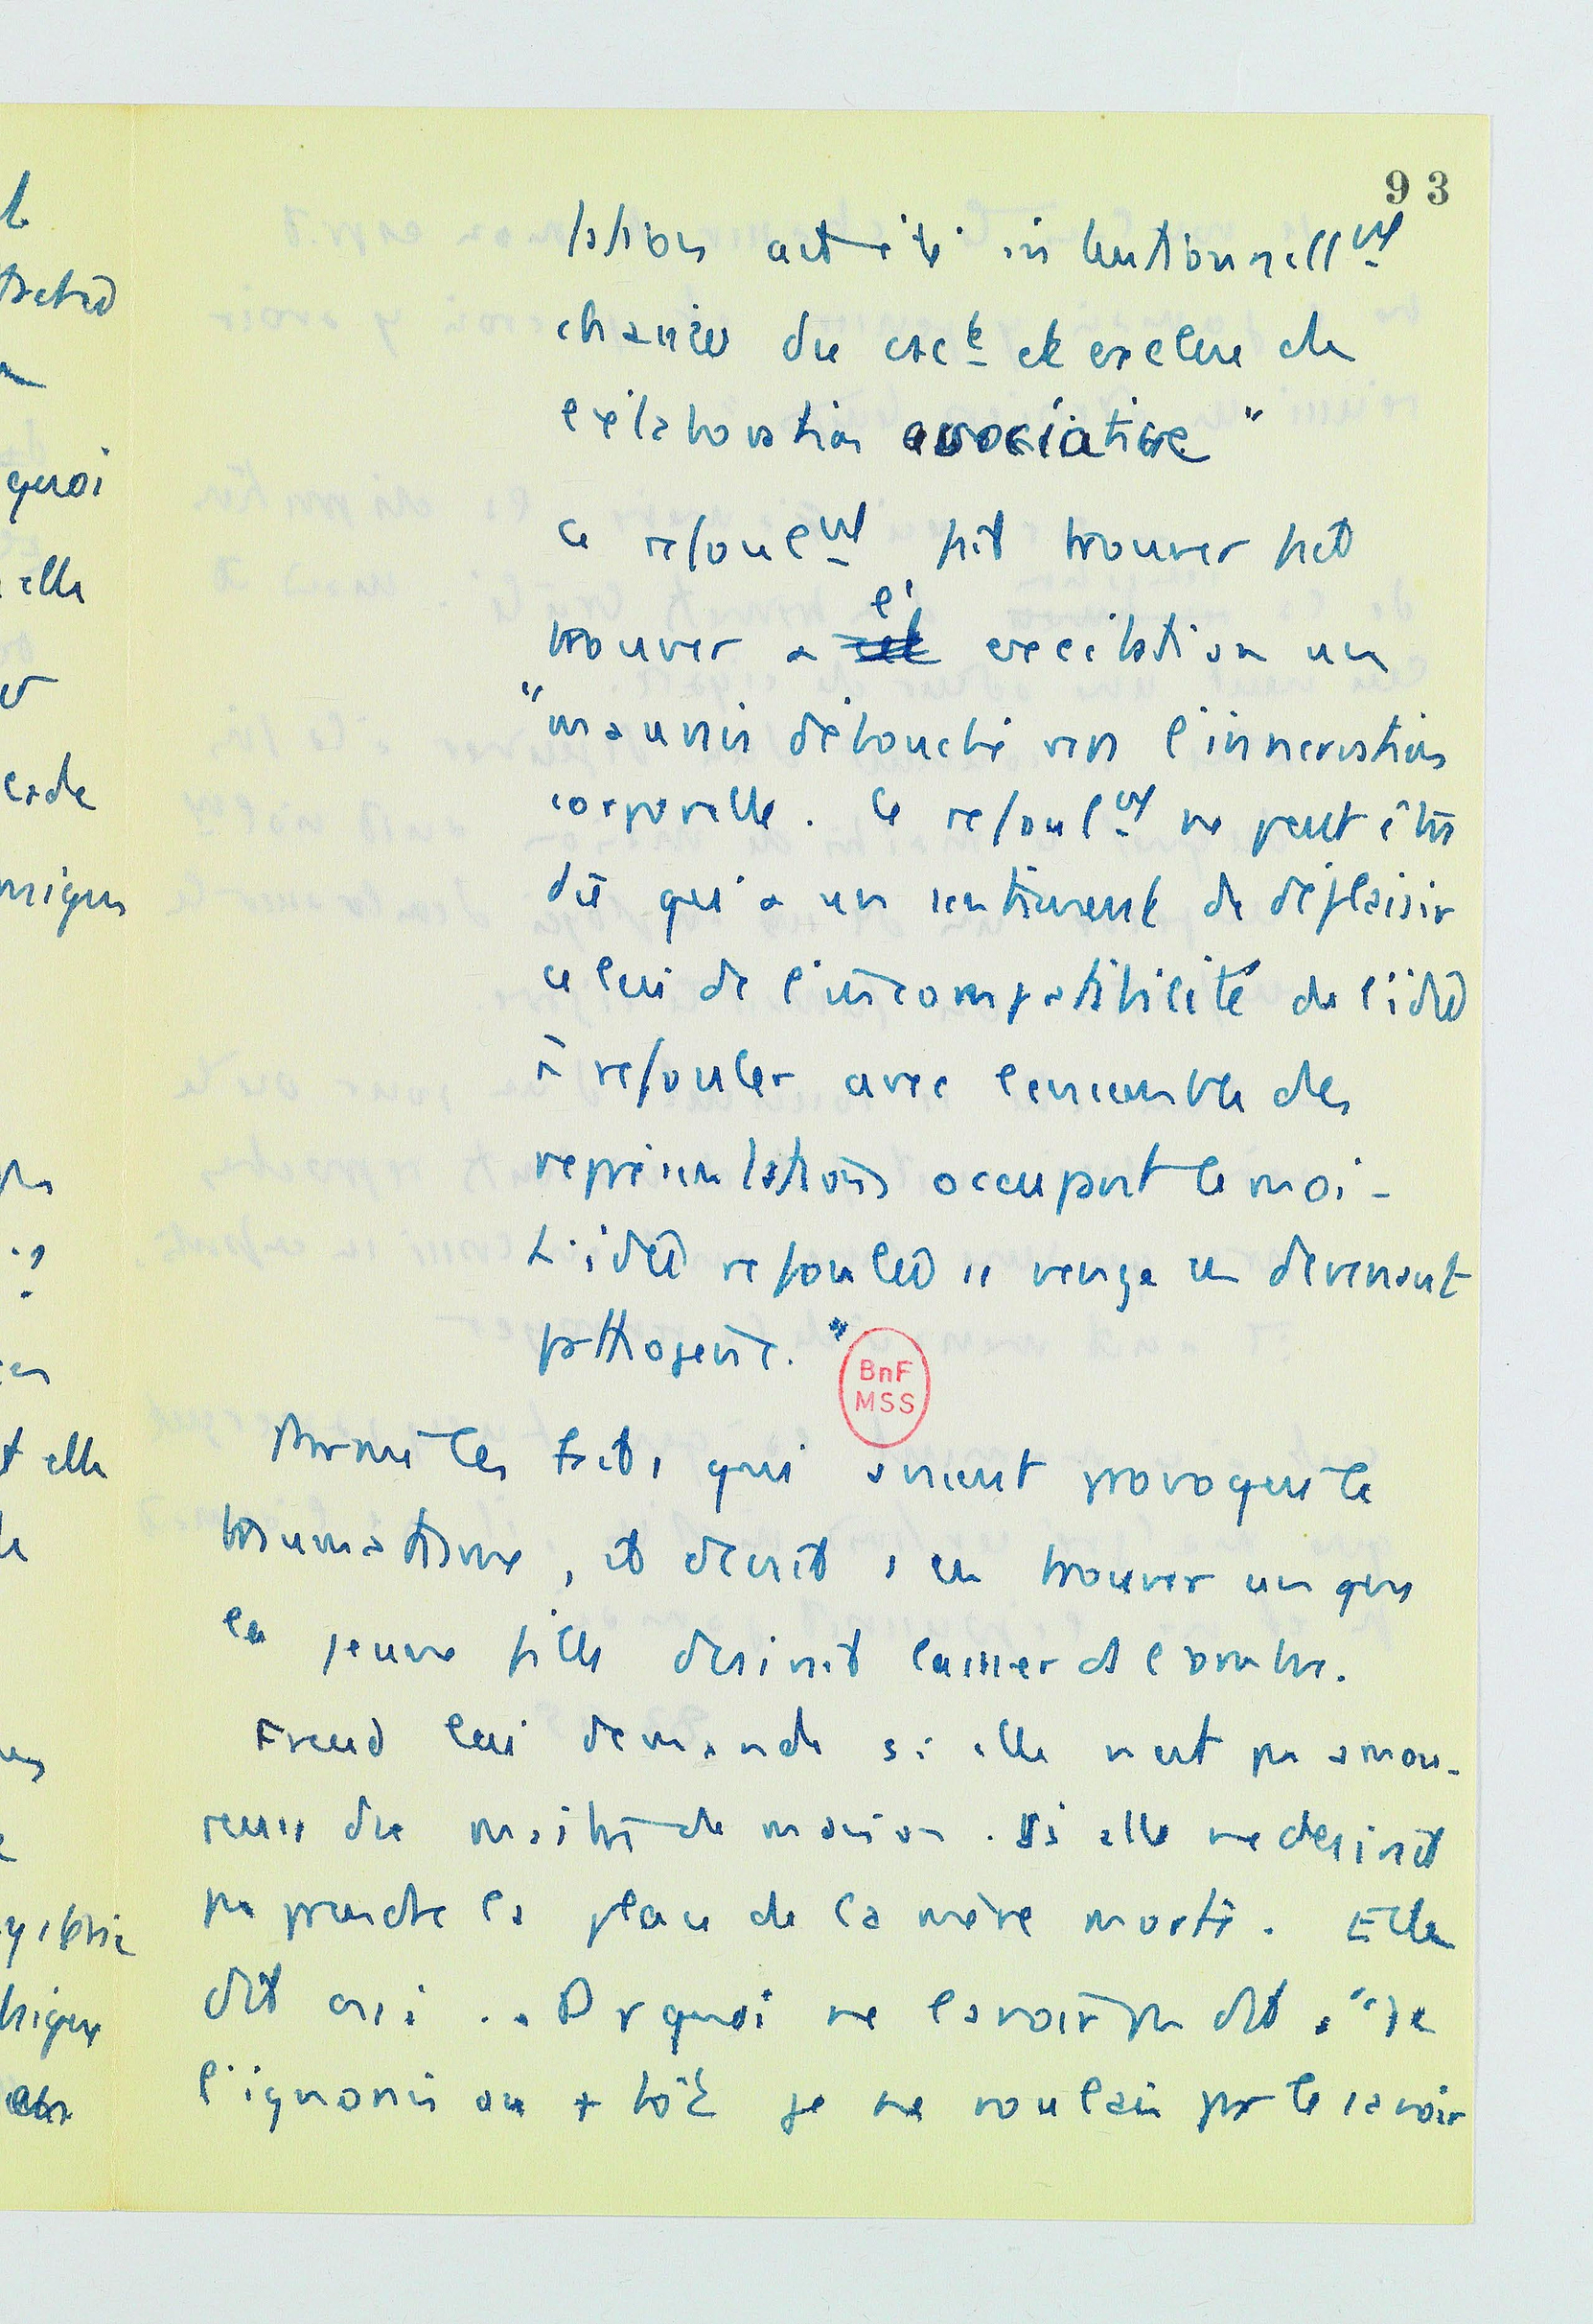 93
tation ait été intentionnellnt
chassée du csct et exclue de
l'élaboration associative"
Ce refoulnt fait trouver fait
trouver à l' excitation un
"mauvais débouché vers l'innervation
corporelle. Le refoulnt ne peut être
dû qu'à un sentiment de déplaisir
celui de l'incompatibilité de l'idée
à refouler avec l'ensemble des
représentations occupant le moi -
L'idée refoulée se venge en devenant
pathogène."
BnF
MSS
Parmi les faits qui avaient provoqué le
traumatisme, il devait s'en trouver un que
la jeune fille désirait laisser ds l'ombre.
Freud lui demande si elle n'est pas amou-
reuse du maître de maison. Si elle ne désirait
pas prendre la place de la mère morte. Elle
dit oui .. Pr quoi ne l'avoir pas dit. "Je
l'ignorais ou + tôt je ne voulais pas le savoir
quoi
elle
elle